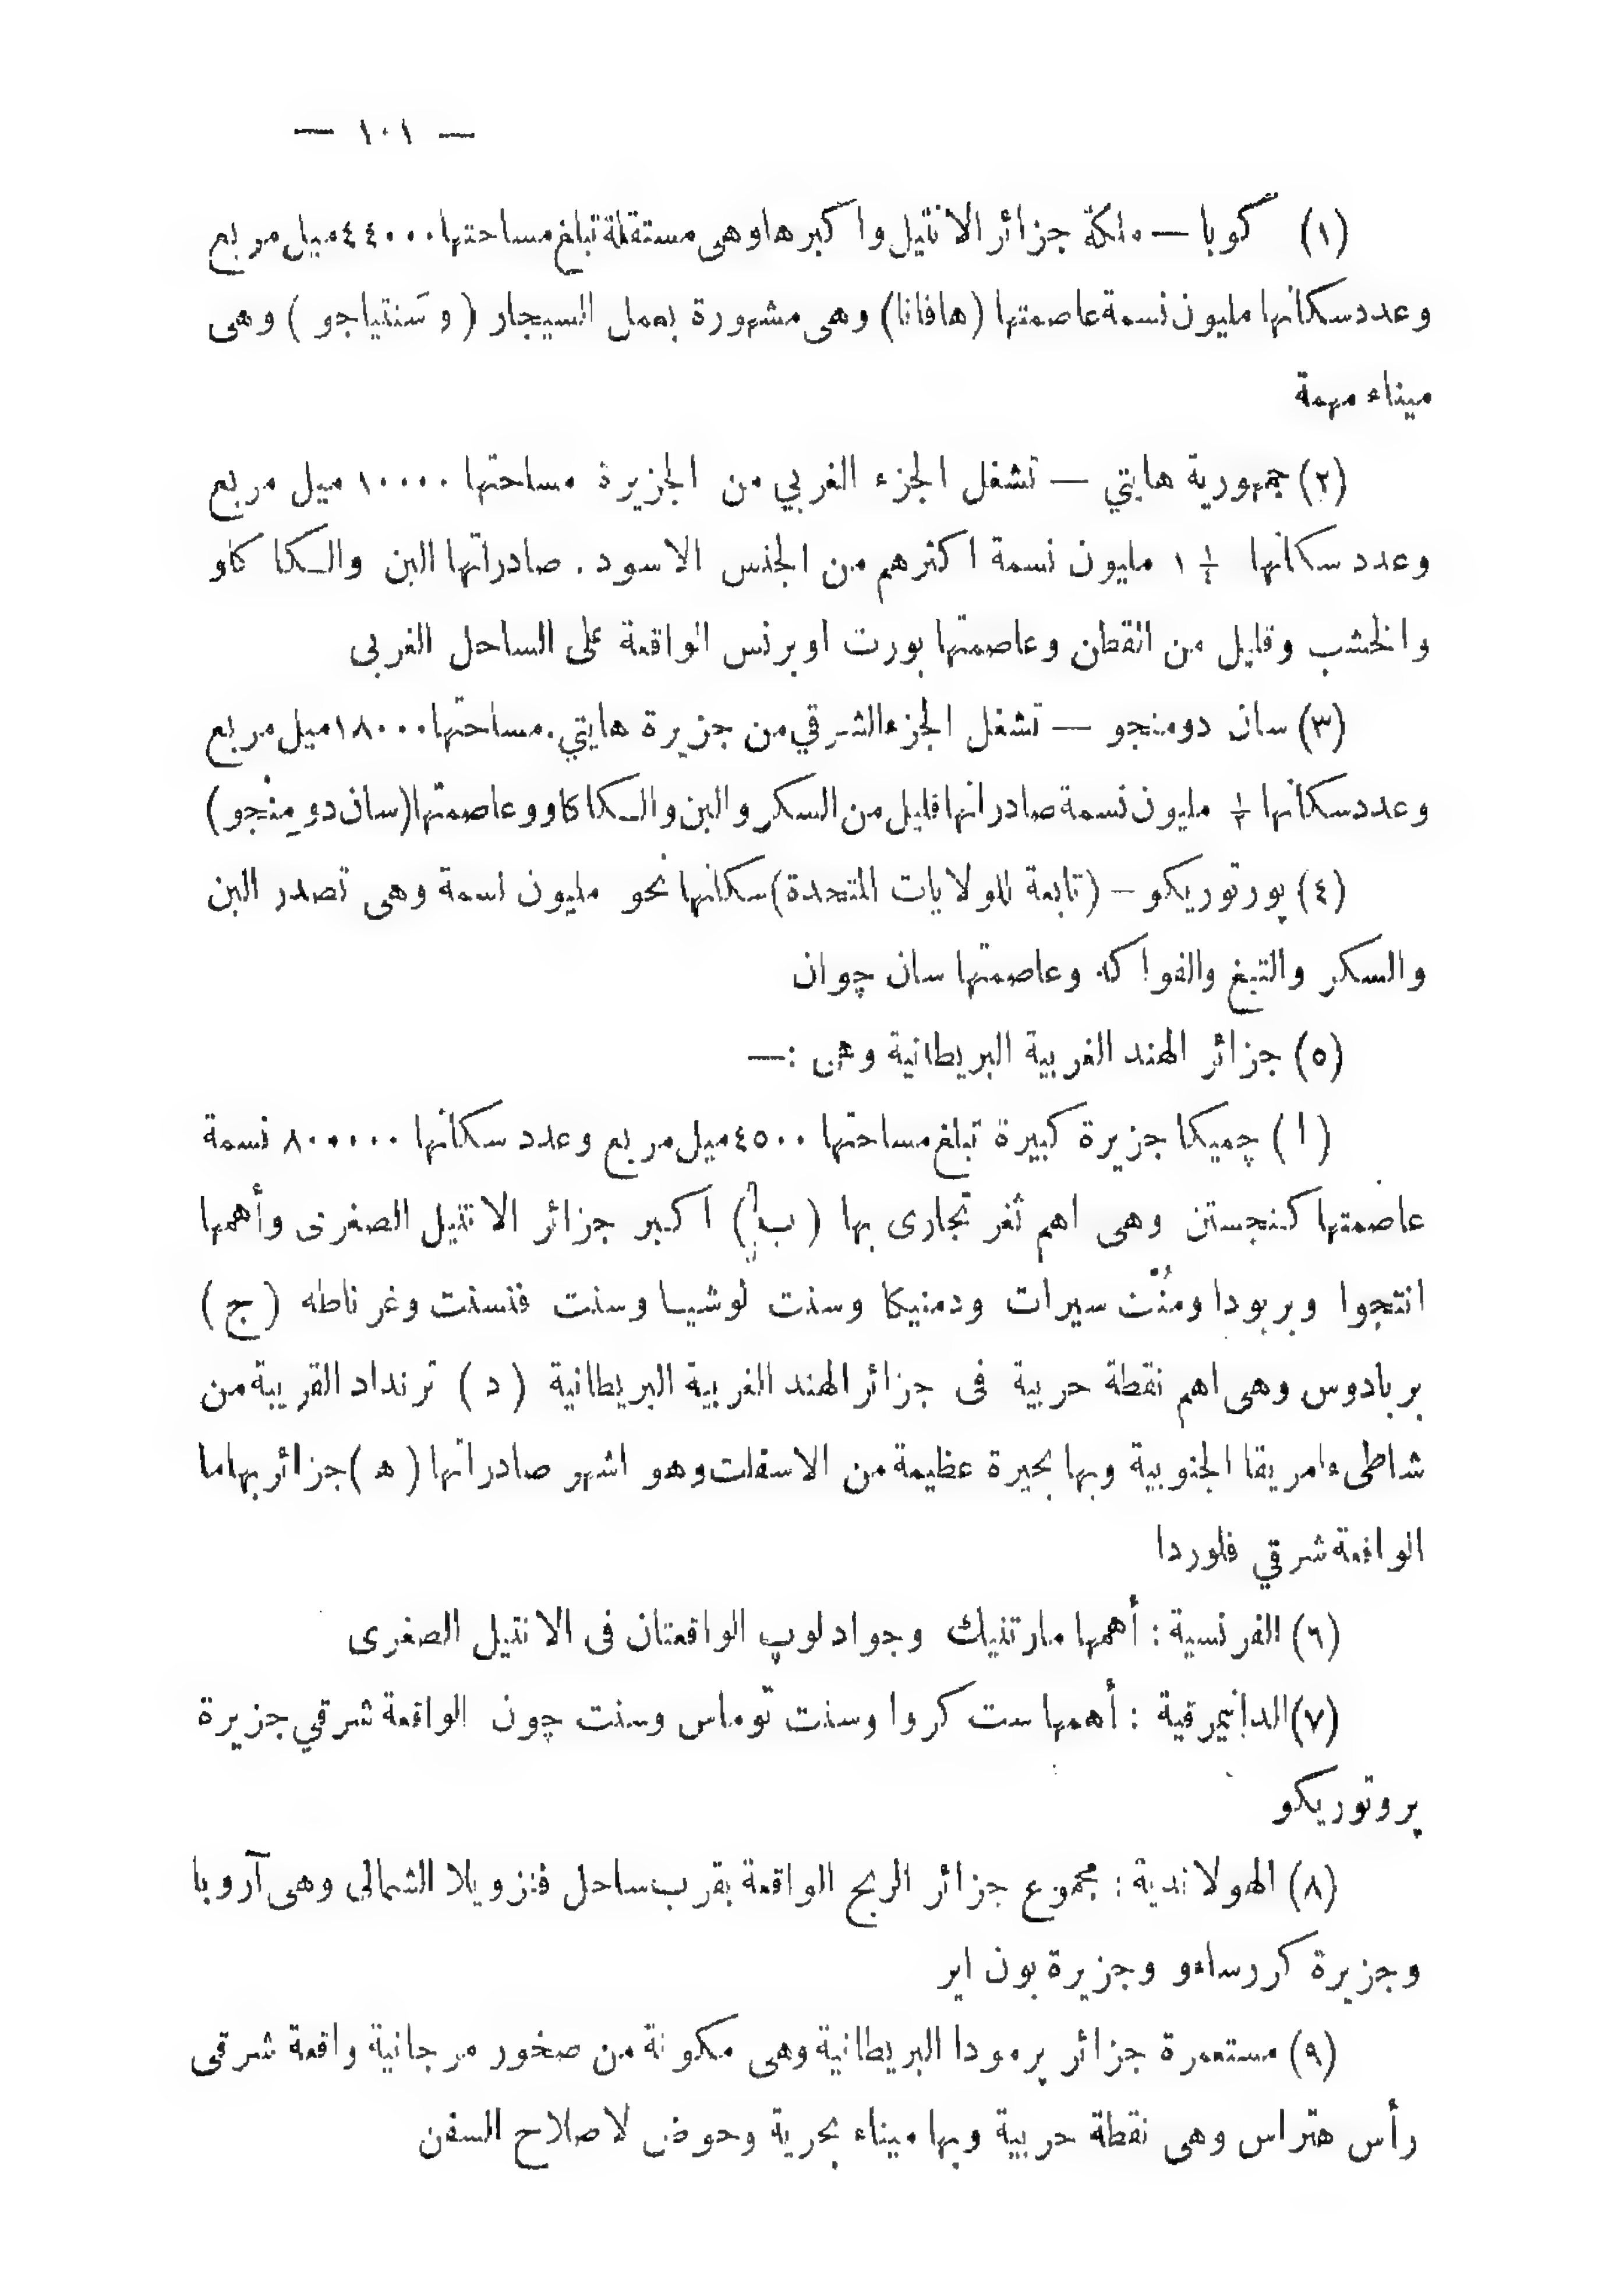 — ١٠١ —
(١) كوبا — ملكة جزائر الانتيل واكبرها وهى مستقلة تبلغ مساحتها ٤٤٠٠٠ ميل مربع
وعدد سكانها مليون نسمة عاصمتها (هافانا) وهى مشهورة بعمل السيجار (وسَنتياجو) وهى
ميناء مهمة
(٢) جمهورية هايتي — تشغل الجزء الغربي من الجزيرة مساحتها ١٠٠٠٠ ميل مربع
وعدد سكانها ١ مليون نسمة اكثرهم من الجنس الاسود . صادراتها البن والكاكاو
والخشب وقليل من القطن وعاصمتها بورت اوبرنس الواقعة على الساحل الغربى
(٣) سان دومنجو — تشغل الجزء الشرقي من جزيرة هايتي . مساحتها ١٨٠٠٠ ميل مربع
وعدد سكانها ½ مليون نسمة صادراتها قليل من السكر والبن والكاكاو وعاصمتها (سان دومِنْجو)
(٤) پورتوريكو — (تابعة للولايات المتحدة) سكانها نحو مليون نسمة وهى تصدر البن
والسكر والتبغ والفواكه وعاصمتها سان چوان
(٥) جزائر الهند الغربية البريطانية وهى :—
(ا) چميكا جزيرة كبيرة تبلغ مساحتها ٤٥٠٠ ميل مربع وعدد سكانها ٨٠٠٠٠٠ نسمة
عاصمتها كنجستن وهى اهم ثغر تجارى بها (ب) اكبر جزائر الانتيل الصغرى وأهمها
انتجوا وبربودا ومُنْت سيرات ودمنيكا وسنت لوشيا وسنت فنسنت وغرناطه (ج)
بربادوس وهى اهم نقطة حربية فى جزائر الهند الغربية البريطانية (د) ترنداد القريبة من
شاطىء امريقا الجنوبية وبها بحيرة عظيمة من الاسفلت وهو اشهر صادراتها (ه) جزائر بهاما
الواقعة شرقي فلوردا
(٦) الفرنسية : أهمها مارتنيك وجوادلوپ الواقعتان فى الانتيل الصغرى
(٧) الدانيمرقية : أهمها ست كروا وسنت توماس وسنت چون الواقعة شرقي جزيرة
پروتوريكو
(٨) الهولاندية : مجموع جزائر الريح الواقعة بقرب ساحل فنزويلا الشمالى وهى آروبا
وجزيرة كررساءو وجزيرة بون اير
(٩) مستعمرة جزائر برمودا البريطانية وهى مكونة من صخور مرجانية واقعة شرقى
رأس هتراس وهى نقطة حربية وبها ميناء بحرية وحوض لاصلاح السفن